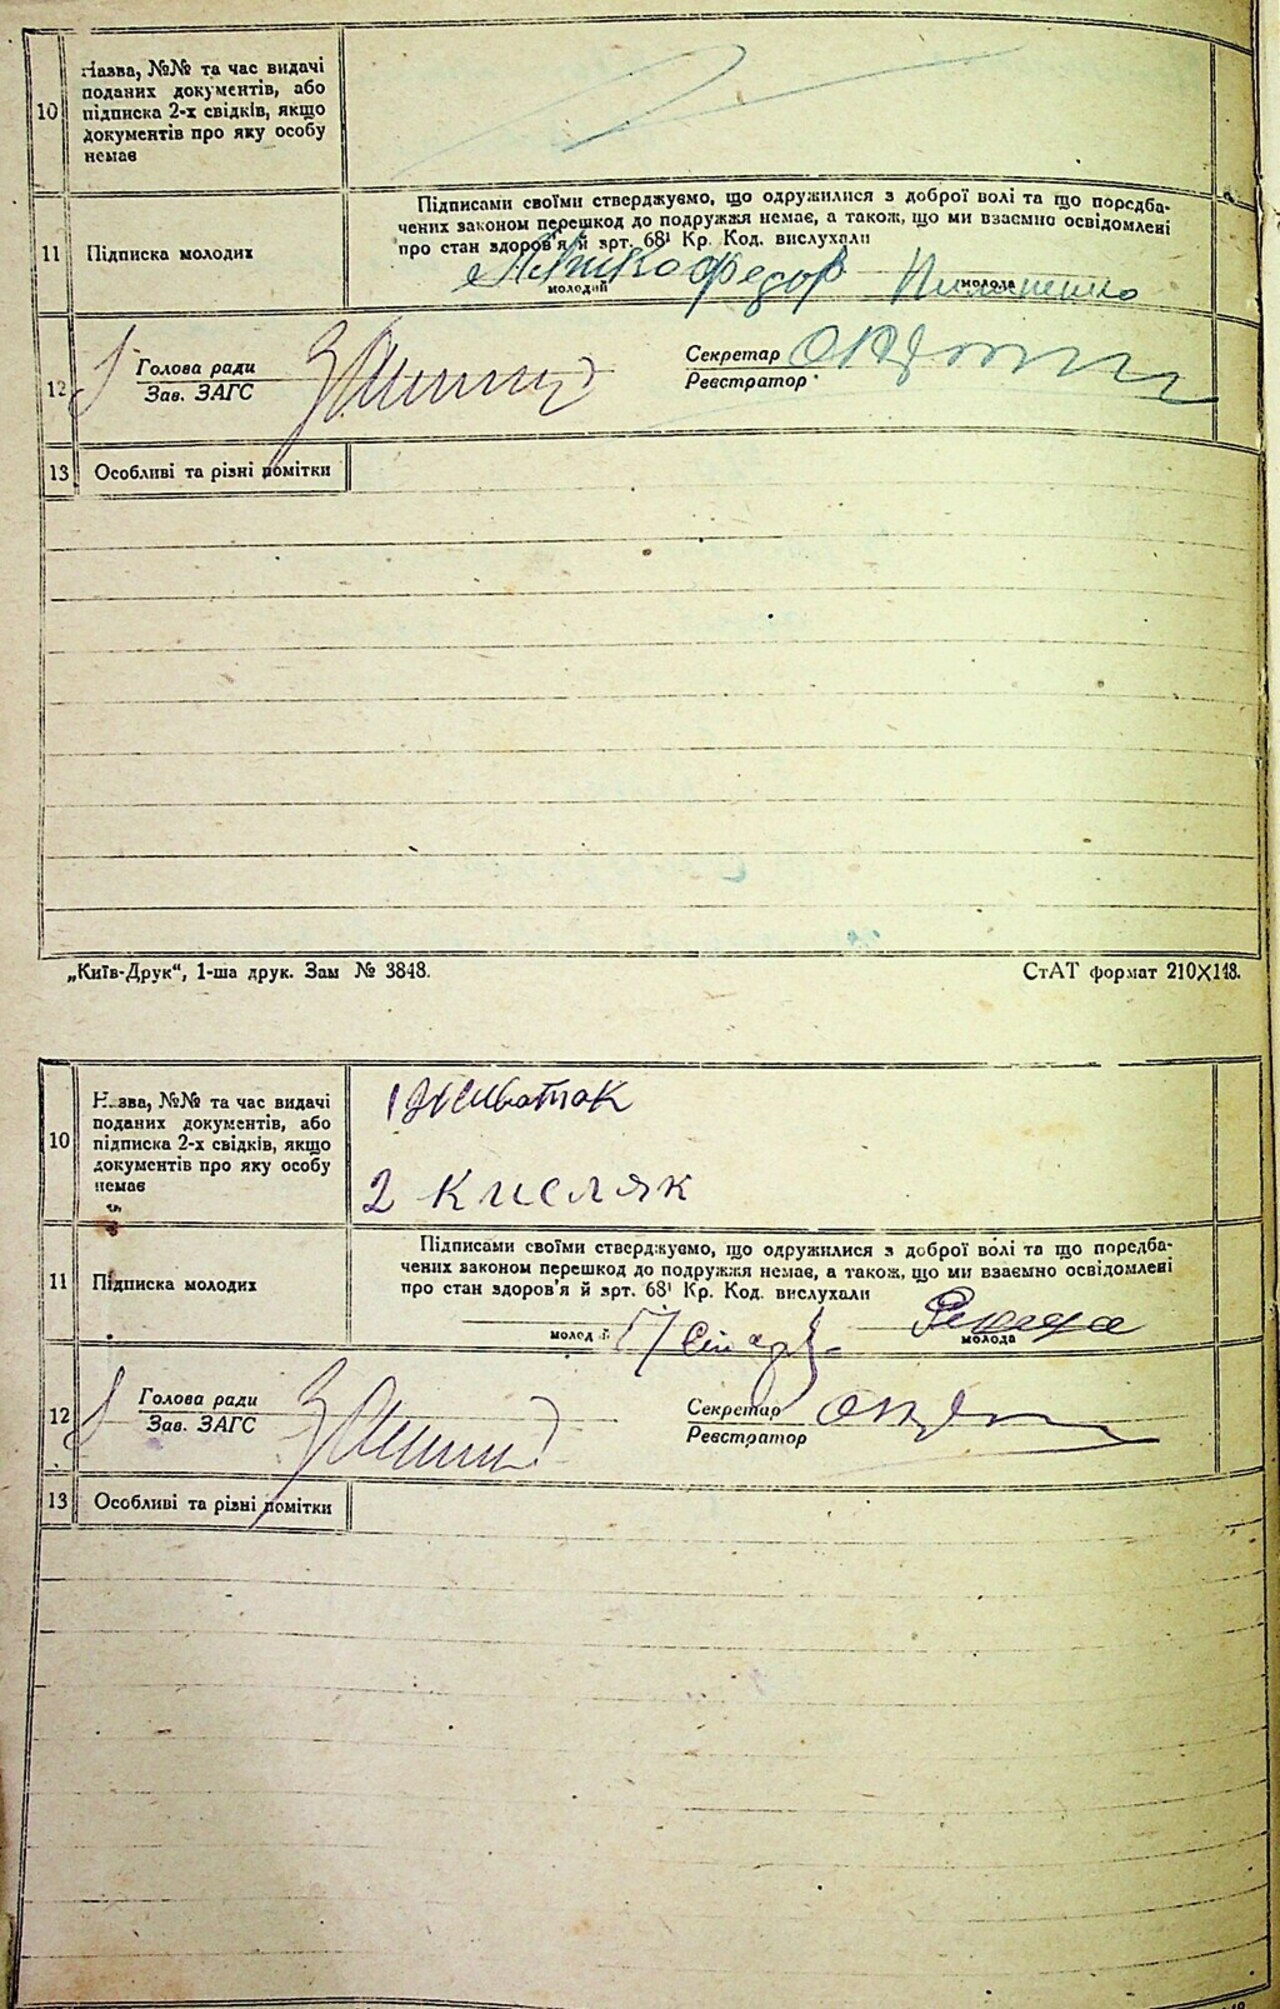 10
Назва, №№ та час видачі
поданих документів, або
підписка 2-х свідків, якщо
документів про яку особу
немає
11
Підписка молодих
Підписами своїми стверджуємо, що одружилися з доброї волі та що поредба-
чених законом перешкод до подружжя немає, а також, що ми взаємно освідомлені
про стан здоров'я й арт. 68¹ Кр. Код. вислухали
Федор
молодий
молода
12
Голова ради
Зав. ЗАГС
Секретар
Реєстратор
13
Особливі та різні помітки
„Київ-Друк“, 1-ша друк. Зам № 3848.
СтАТ формат 210X148.
10
Назва, №№ та час видачі
поданих документів, або
підписка 2-х свідків, якщо
документів про яку особу
немає
1
2 Кисляк
11
Підписка молодих
Підписами своїми стверджуємо, що одружилися з доброї волі та що поредба-
чених законом перешкод до подружжя немає, а також, що ми взаємно освідомлені
про стан здоров'я й арт. 68¹ Кр. Код. вислухали
молодий
молода
12
Голова ради
Зав. ЗАГС
Секретар
Реєстратор
13
Особливі та різні помітки